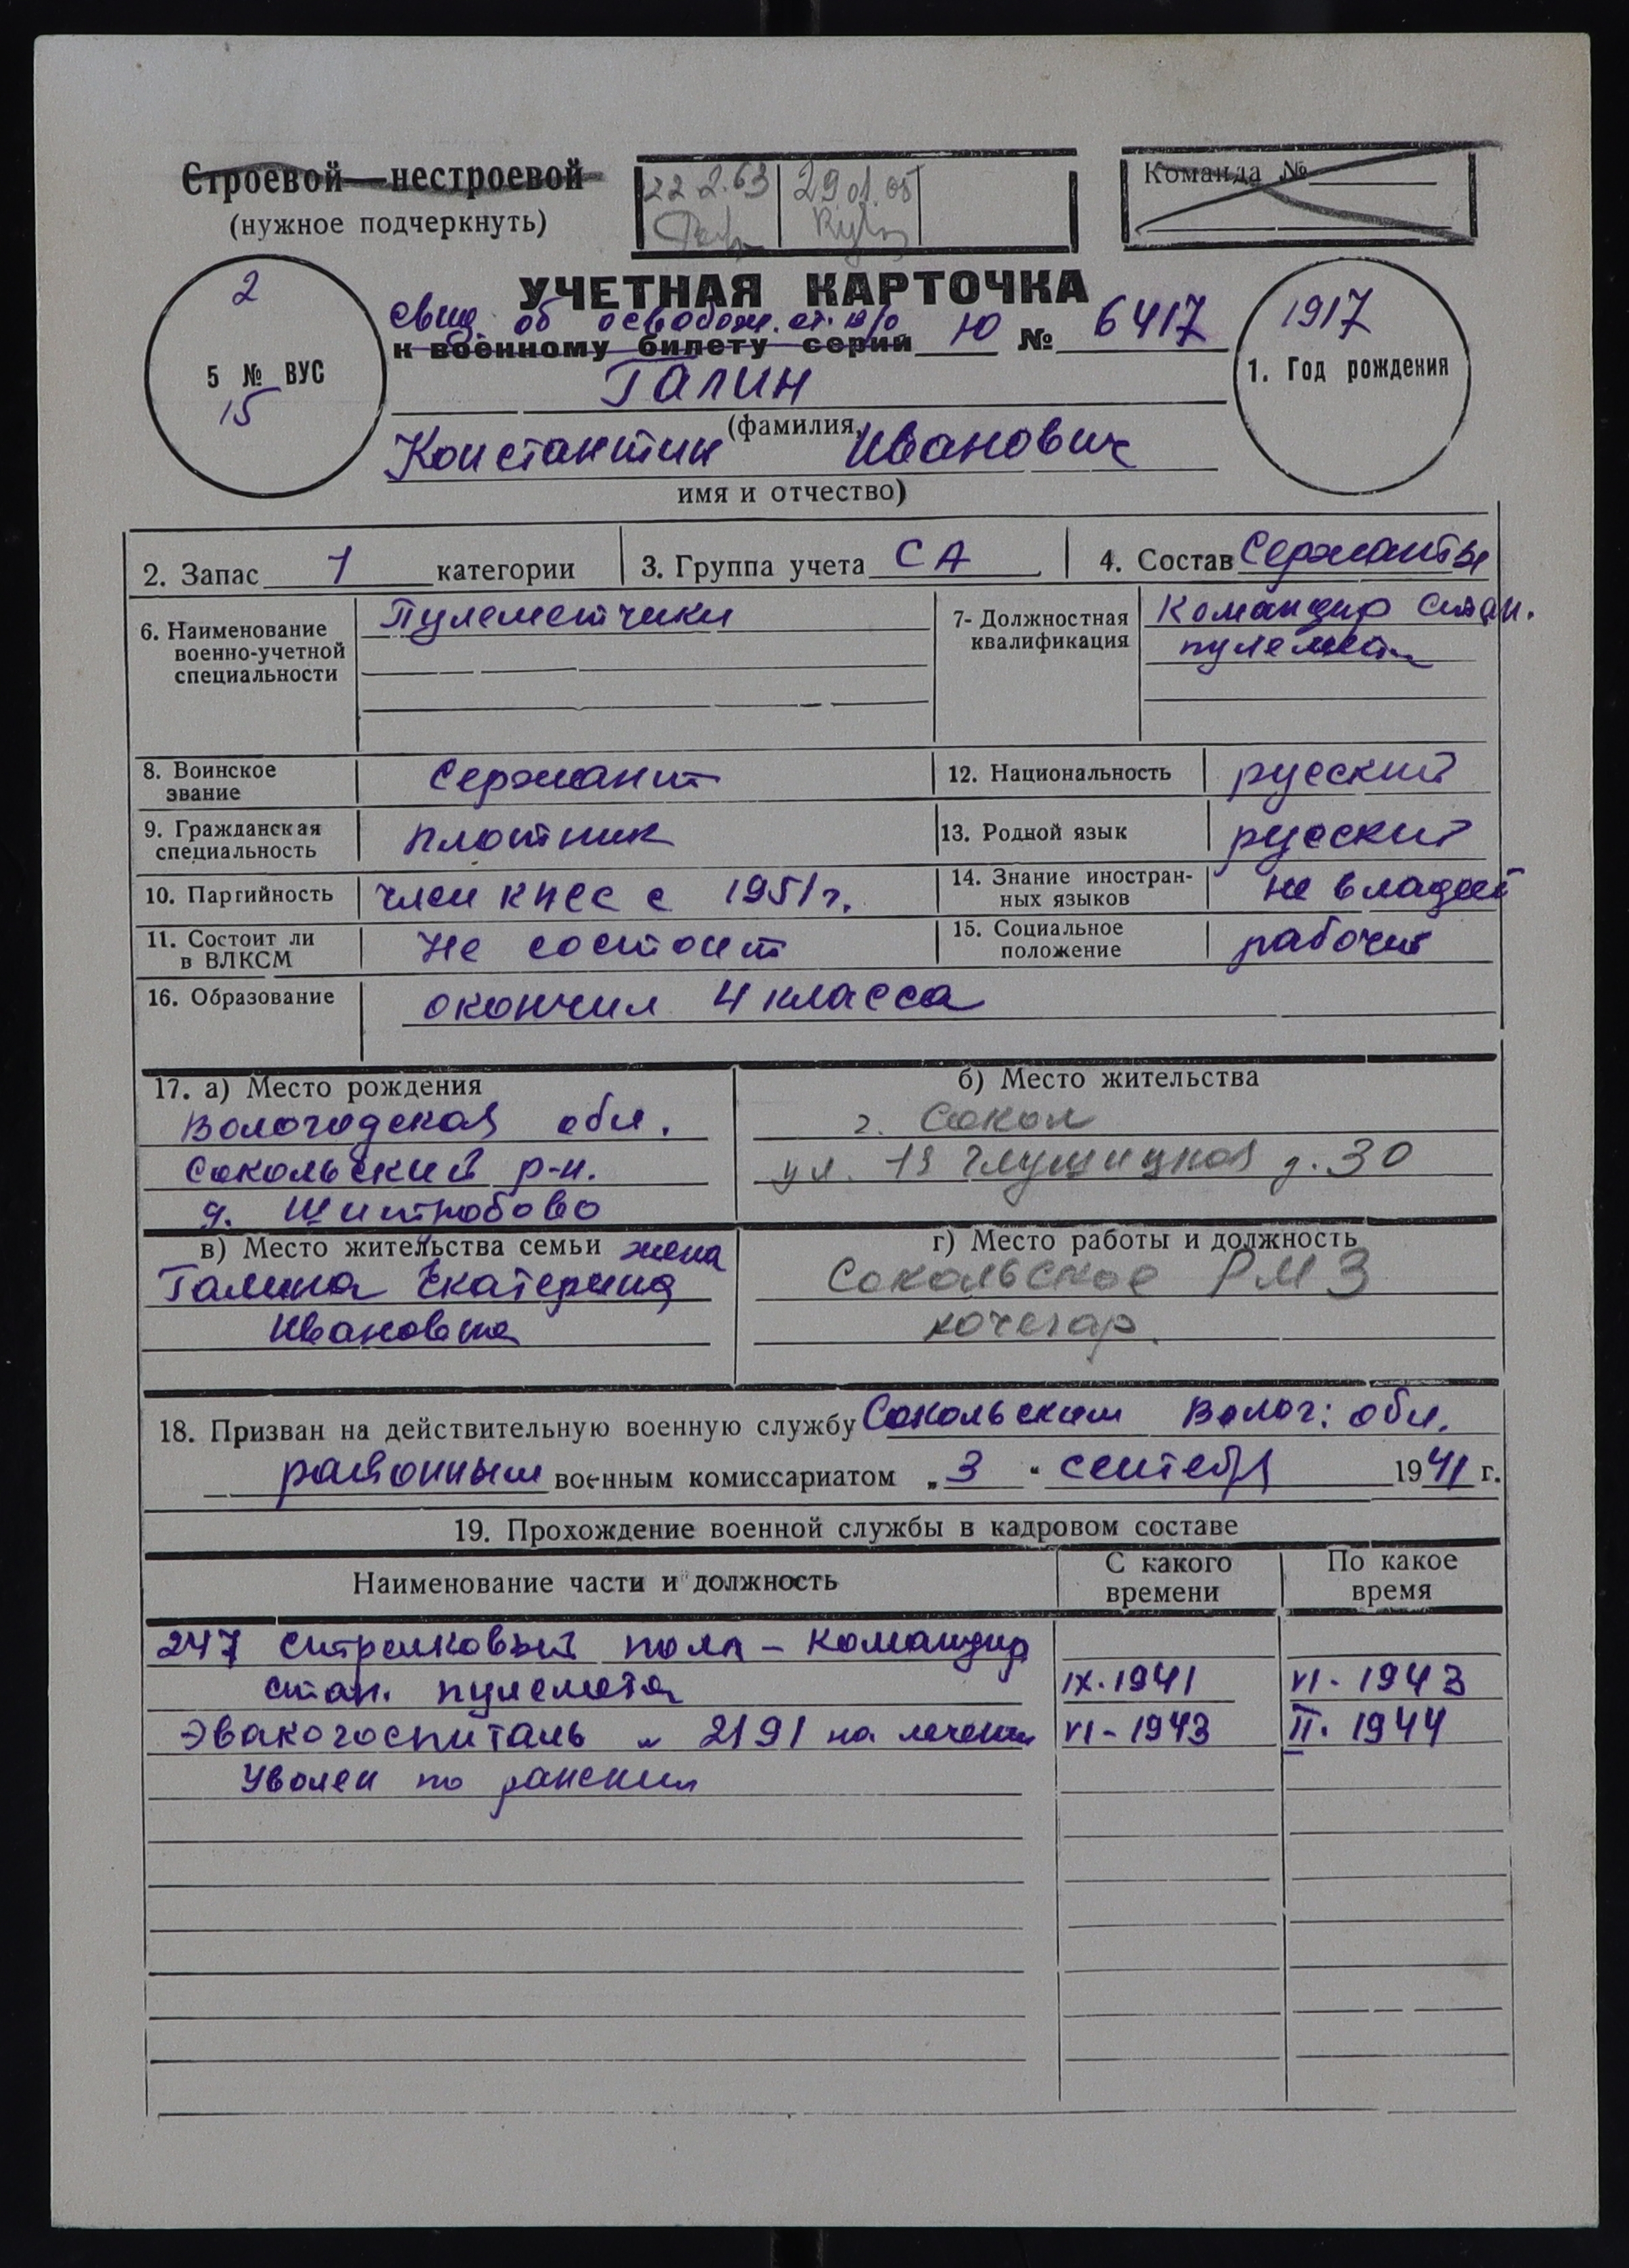 Строевой—нестроевой
(нужное подчеркнуть)
22.2.63 29.01.05
Команда №
УЧЕТНАЯ КАРТОЧКА
свид. об освобожд. от в/о
к военному билету серии Ю № 6417
2
5 № ВУС
15
1917
1. Год рождения
Галин
(фамилия,
Константин Иванович
имя и отчество)
2. Запас 1 категории
3. Группа учета СА
4. Состав Сержанты
6. Наименование военно-учетной специальности Пулеметчики
7- Должностная квалификация Командир стан. пулемета
8. Воинское звание Сержант
12. Национальность русский
9. Гражданская специальность плотник
13. Родной язык русский
10. Партийность член КПСС с 1951 г.
14. Знание иностранных языков не владеет
11. Состоит ли в ВЛКСМ Не состоит
15. Социальное положение рабочий
16. Образование окончил 4 класса
17. а) Место рождения
Вологодская обл.
Сокольский р-н.
д.
б) Место жительства
г. Сокол
ул. Глушицкая д. 30
в) Место жительства семьи жена
Галина Екатерина
Ивановна
г) Место работы и должность
Сокольское РМЗ
кочегар.
18. Призван на действительную военную службу Сокольским Волог. обл.
районным военным комиссариатом „3" сентября 1941 г.
19. Прохождение военной службы в кадровом составе
Наименование части и должность
С какого времени
По какое время
247 стрелковый полк – командир
стан. пулемета IX.1941 VI-1943
Эвакогоспиталь 2191 на лечении VI-1943 II.1944
Уволен по ранению